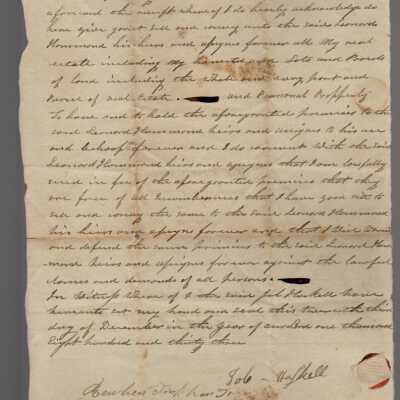 aforesaid the receipt whereof I do hereby acknowledge do
here give grant sell and convey unto the said Leonard
Hammond his heirs and assigns forever all My real
estate including My homested and Lots and Parcels
of land including the whole and every part and
Parcel of real Estate. and Personal Propperty
To have and to hold the aforegranted premises to the
said Leonard Hammond heirs and assigns to his use
and behoof forever and I do covenant with the said
Leonard Hammond heirs and assigns that I am lawfully
seized in fee of the aforegranted premises that they
are free of all Incumbrances that I have good right to
sell and convey the same to the said Leonard Hammond
his heirs and assigns forever and that I Will
and defend the same premises to the said Leonard Ham
mond heirs and assigns forever against the lawful
claims and demands of all persons.
In Witness Whereof I the said Job Haskell have
hereunto set my hand and seal this
day of December in the year of our Lord one thousand
Eight hundred and thirty three
Job Haskell
Reuben